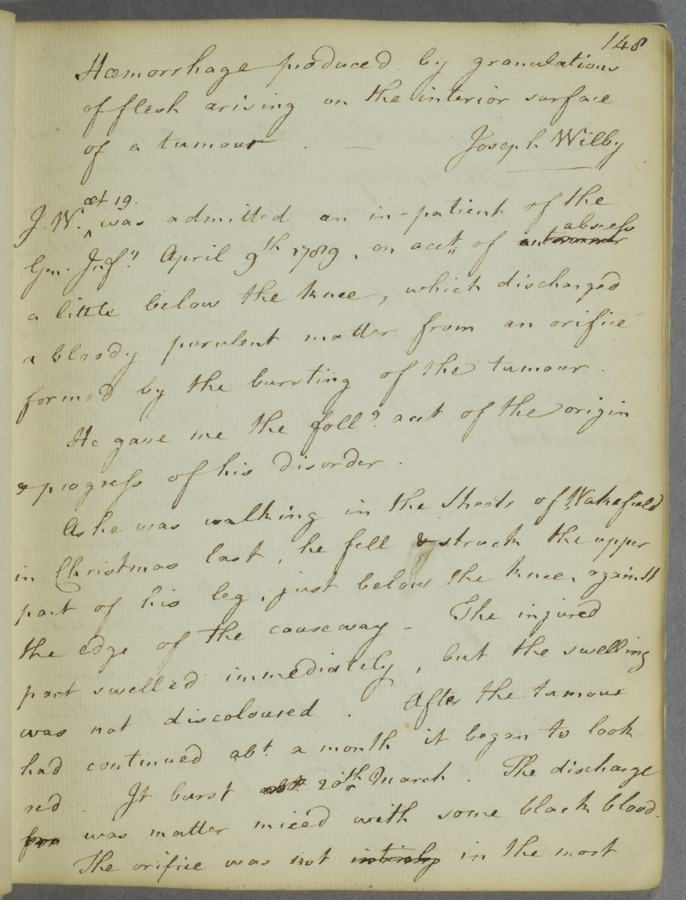 148
Hæmorrhage produced by granulations
of flesh arising on the interior surface
of a tumour. — Joseph Wilby
æt 19.
J. W. ^ was admitted an in-patient of the
abscess
Gen. Inf.y April 9th 1789, on acct. of an tumour
a little below the knee, which discharged
a bloody purulent matter from an orifice
formed by the bursting of the tumour.
He gave me the foll.g acct of the origin
& progress of his disorder.
As he was walking in the Streets of Wakefield
in Christmas last, he fell & struck the upper
part of his leg, just below the knee, against
the edge of the causeway - The injured
part swelled immediately, but the swelling
was not discoloured. After the tumour
had continued abt. a month it began to look
red. It burst abt. 20th March. The discharge
was matter mixed with some black blood.
The orifice was not entirely in the most